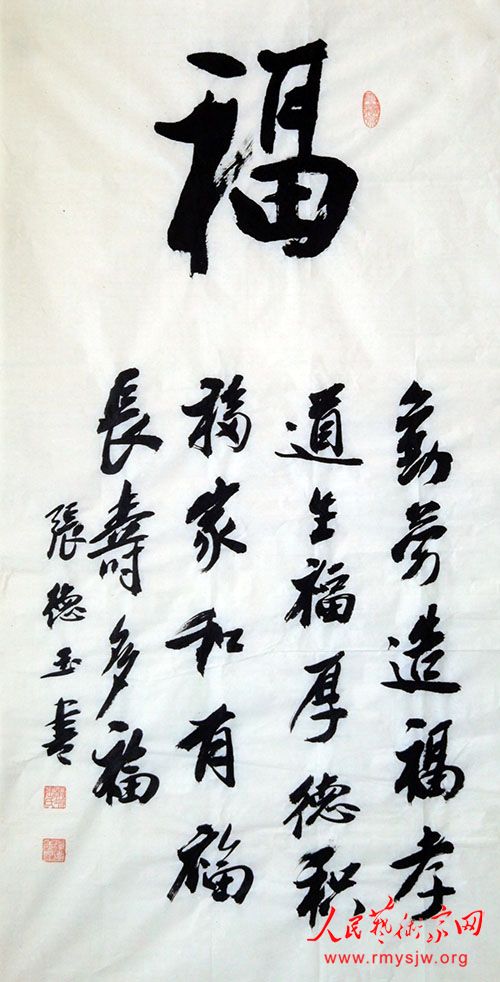 福
勤劳造福孝
道全福厚德积
福家和有福
長壽多福
張德玉書
人民艺术家网
www.rmysjw.org